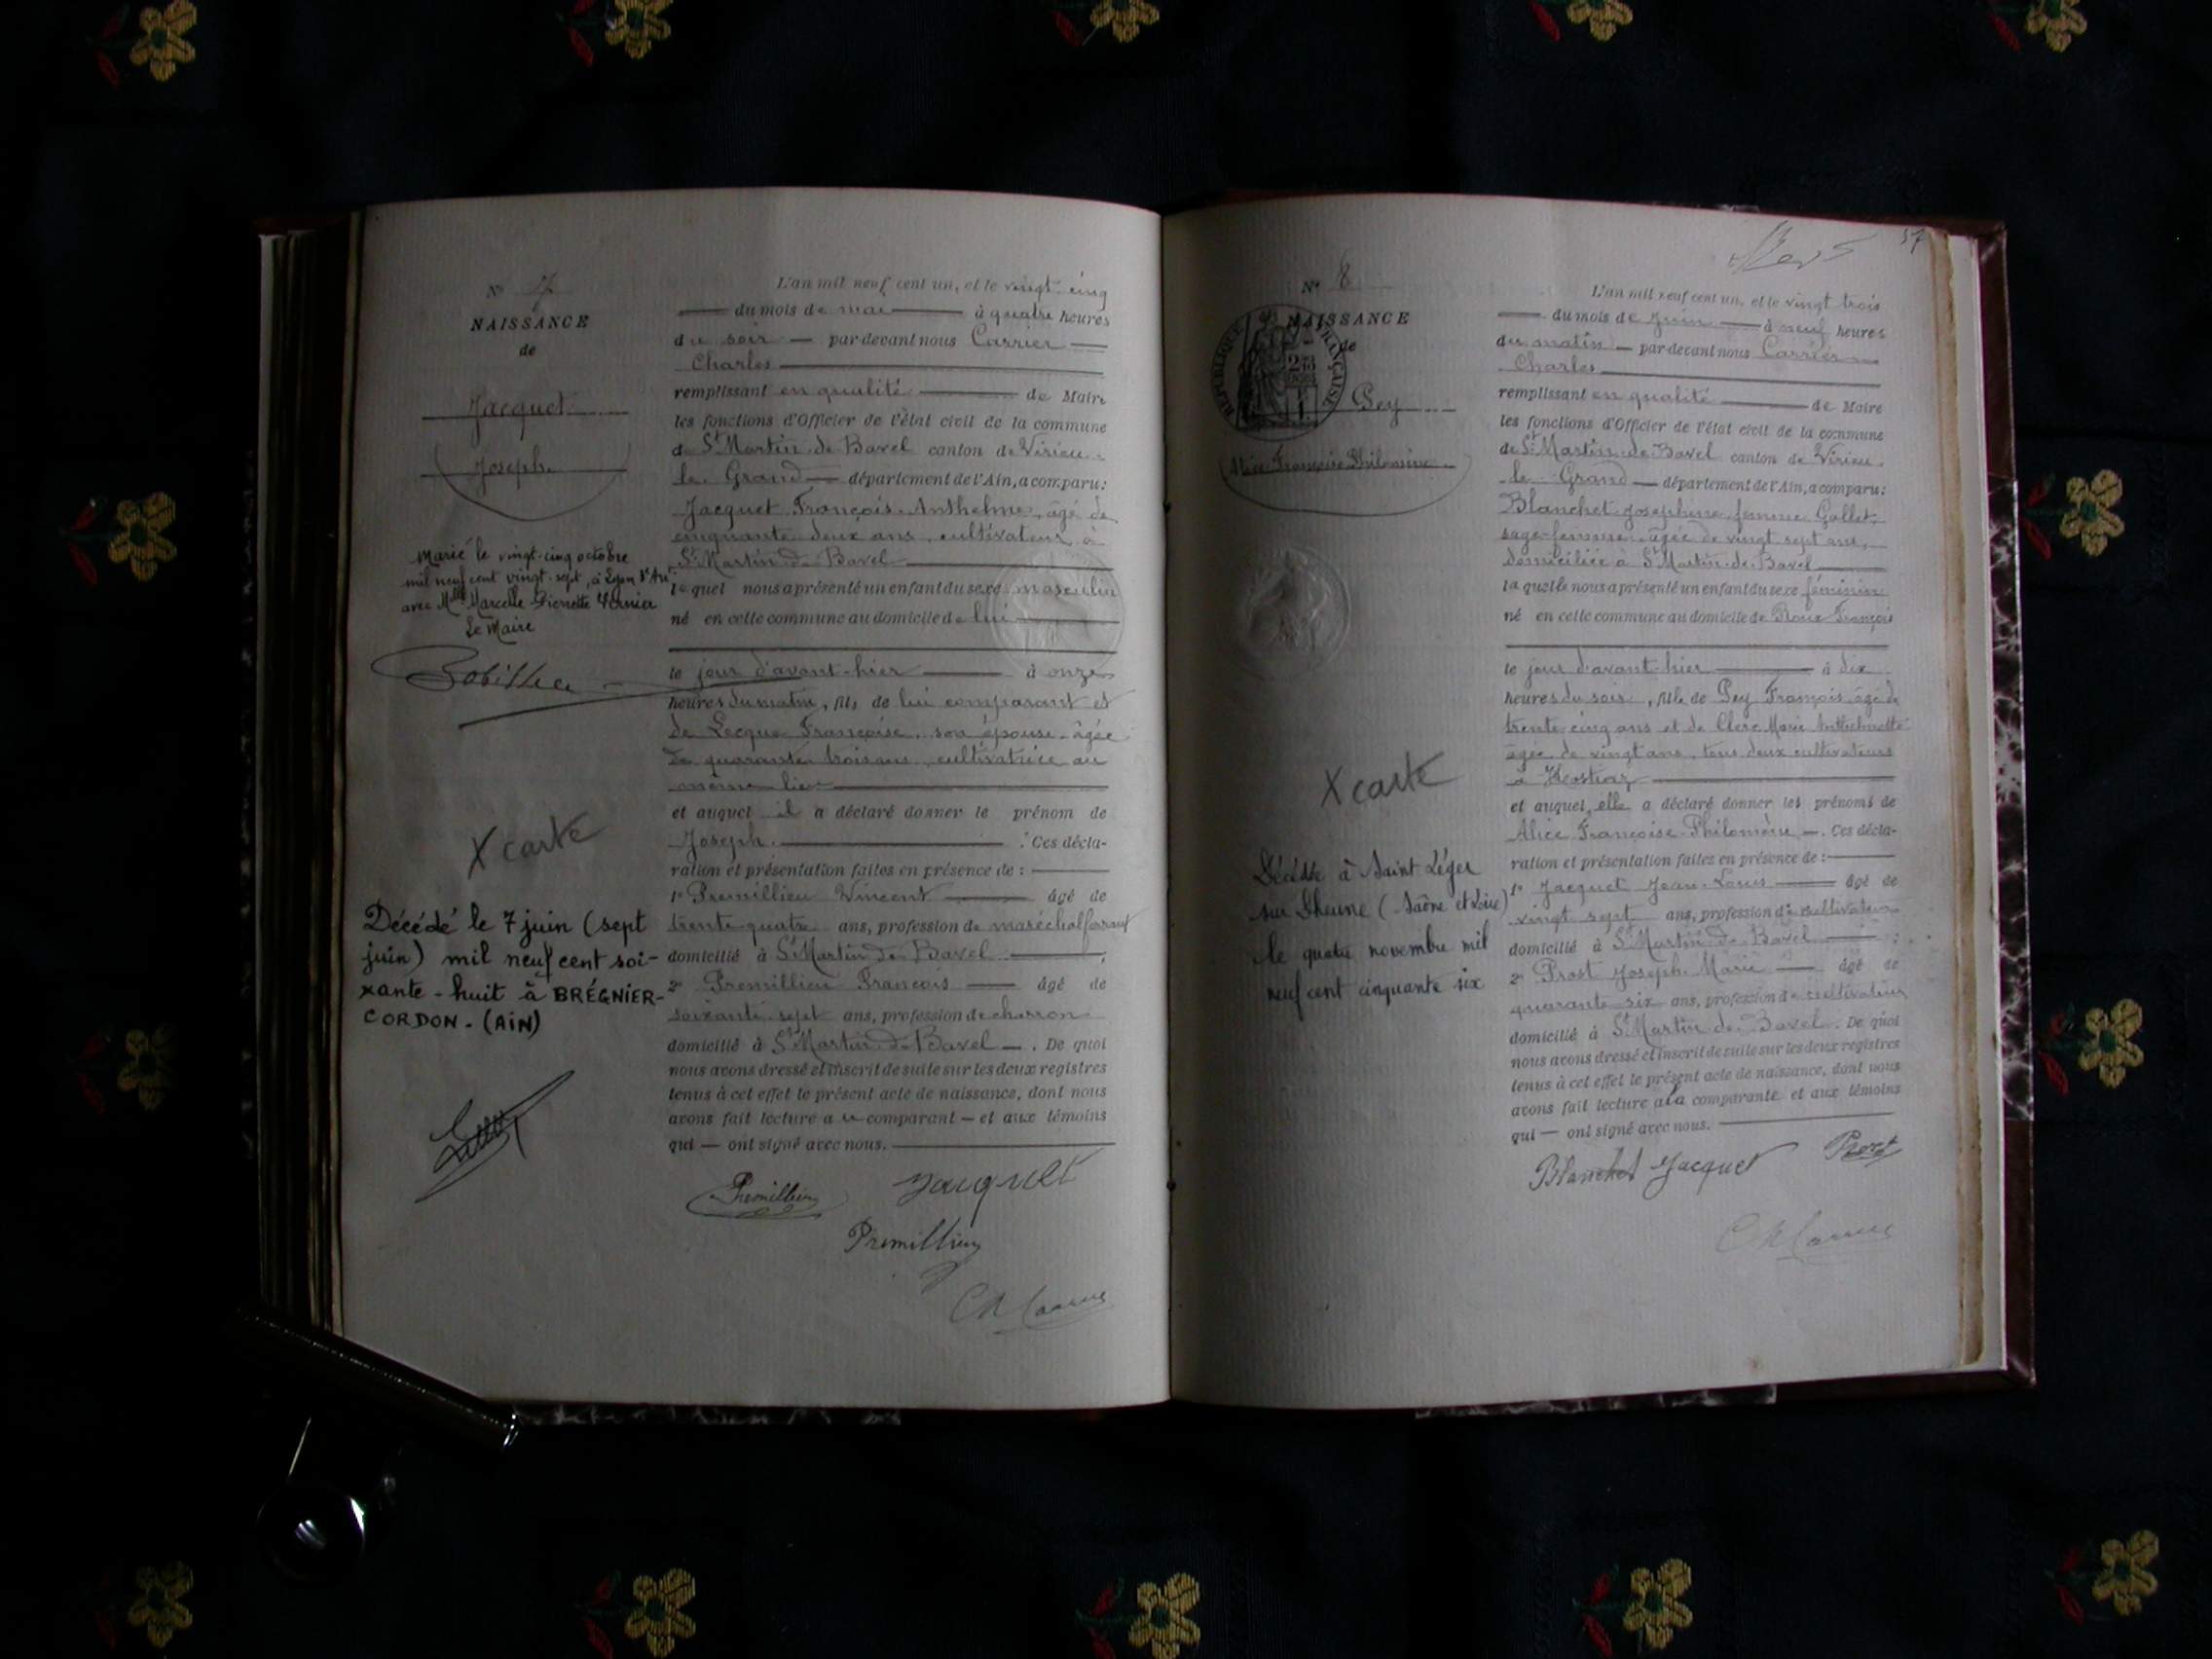 N° 7
NAISSANCE
de
Jacquet
Joseph
Marié le vingt-cinq octobre
mil neuf cent vingt-sept, à Lyon
avec Mlle Marcelle Pierrette Vernier
Le Maire
X carte
Décédé le 7 juin (sept
juin) mil neuf cent soi-
xante-huit à BRÉGNIER-
CORDON. (AiN)
L'an mil neuf cent un, et le vingt-cinq
du mois de mai à quatre heures
du soir par-devant nous Carrier
Charles
remplissant en qualité de Maire
les fonctions d'Officier de l'état civil de la commune
de St Martin de Bavel canton de Virieu-
le-Grand département de l'Ain, a comparu:
Jacquet François-Anthelme, âgé de
cinquante deux ans, cultivateur à
St Martin-de-Bavel
lequel nous a présenté un enfant du sexe masculin
né en cette commune au domicile de lui
le jour d'avant-hier à onze
heures du matin, fils de lui comparant et
de Lecque Françoise, son épouse, âgée
de quarante trois ans, cultivatrice au
même lieu
et auquel il a déclaré donner le prénom de
Joseph. Ces décla-
ration et présentation faites en présence de :
1° Premillieu Vincent âgé de
trente-quatre ans, profession de maréchal ferrant
domicilié à St Martin-de-Bavel ;
2° Premillieu François âgé de
soixante-sept ans, profession de charron
domicilié à St Martin-de-Bavel. De quoi
nous avons dressé et inscrit de suite sur les deux registres
tenus à cet effet le présent acte de naissance, dont nous
avons fait lecture au comparant et aux témoins
qui ont signé avec nous.
Premillieu Jacquet
Premillieu
Ch Carrier
57
N° 8
NAISSANCE
de
RÉPUBLIQUE FRANÇAISE
Pey
Alice Françoise Philomène
X carte
Décédée à Saint Léger
sur Dheune (Saône et Loire)
le quatre novembre mil
neuf cent cinquante six
L'an mil neuf cent un, et le vingt trois
du mois de juin à neuf heures
du matin par-devant nous Carrier
Charles
remplissant en qualité de Maire
les fonctions d'Officier de l'état civil de la commune
de St Martin-de-Bavel canton de Virieu-
le-Grand département de l'Ain, a comparu:
Blanchet Joséphine, femme Gallet,
sage-femme, âgée de vingt sept ans,
domiciliée à St Martin-de-Bavel
laquelle nous a présenté un enfant du sexe féminin
né en cette commune au domicile de Roux François
le jour d'avant-hier à dix
heures du soir, fille de Pey François âgé de
trente cinq ans et de Clerc Marie Anthelmette
âgée de vingt ans, tous deux cultivateurs
à
et auquel, elle a déclaré donner les prénoms de
Alice Françoise-Philomène. Ces décla-
ration et présentation faites en présence de :
1° Jacquet Jean-Louis âgé de
vingt sept ans, profession de cultivateur
domicilié à St Martin-de-Bavel ;
2° Prost Joseph-Marie âgé de
quarante six ans, profession de cultivateur
domicilié à St Martin-de-Bavel. De quoi
nous avons dressé et inscrit de suite sur les deux registres
tenus à cet effet le présent acte de naissance, dont nous
avons fait lecture à la comparante et aux témoins
qui ont signé avec nous.
Blanchet Jacquet Prost
Ch Carrier